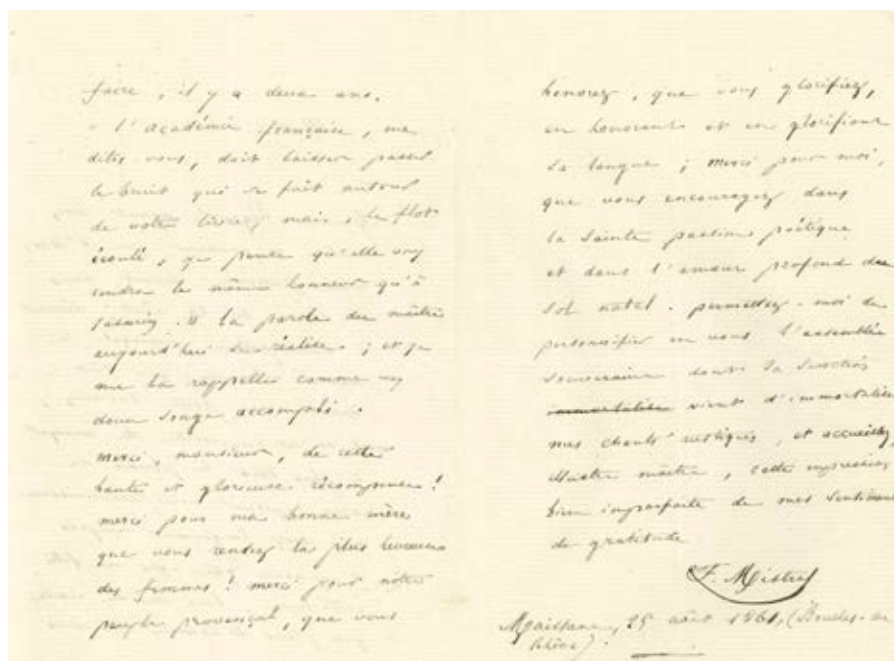 faire, il y a deux ans.
" l'académie française, me
dites vous, doit laisser passer
le bruit qui se fait autour
de votre livre; mais, le flot
écoulé, je pense qu'elle vous
rendra le même honneur qu'à
Jasmin. " la parole du maître
aujourd'hui se réalise; et je
me la rappelle comme un
doux songe accompli.
merci, monsieur, de cette
haute et glorieuse récompense!
merci pour ma bonne mère
que vous rendez la plus heureuse
des femmes! merci pour notre
peuple provençal, que vous
honorez, que vous glorifiez,
en honorant et en glorifiant
sa langue; merci pour moi,
que vous encouragez dans
la sainte passion poétique
et dans l'amour profond du
sol natal. permettez-moi de
personnifier en vous l'assemblée
souveraine dont la sanction
immortalise vient d'immortaliser
mes chants rustiques, et accueillez,
illustre maître, cette expression
bien imparfaite de mes sentiments
de gratitude
F. Mistral
Maillane, 25 août 1861, (Bouches-du
Rhône).